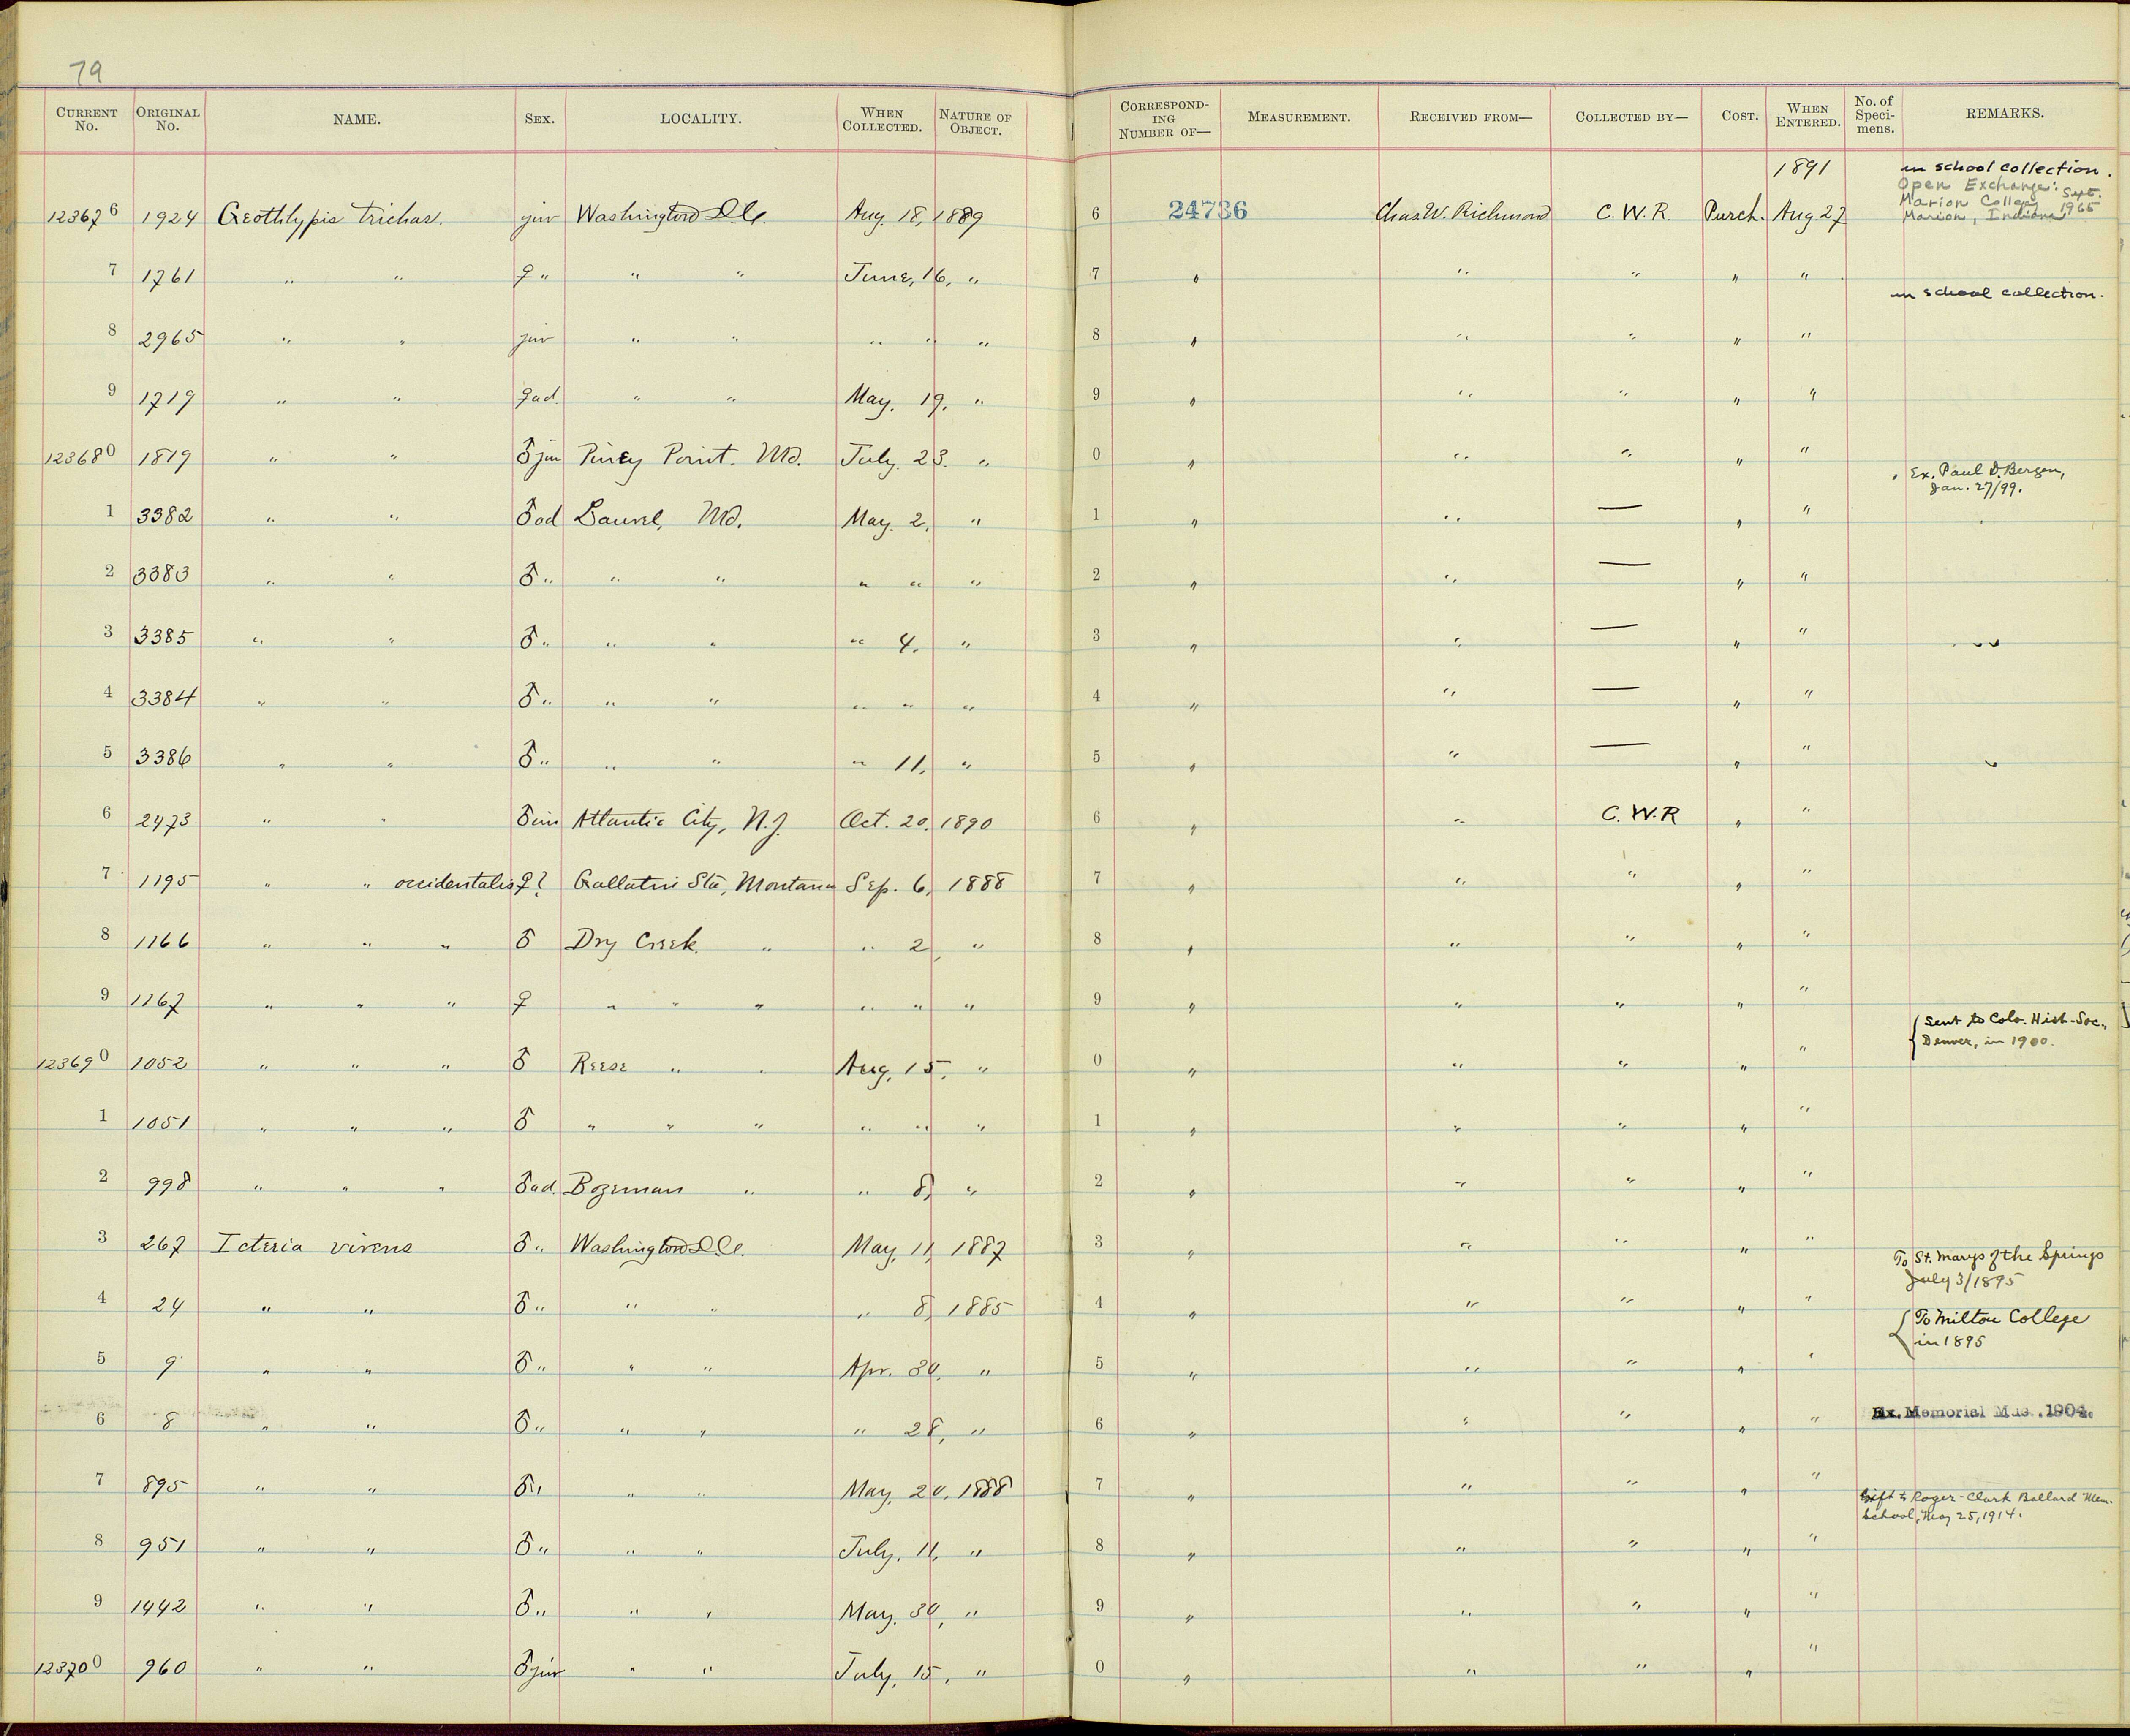 79
CURRENT No. ORIGINAL No. NAME. SEX. LOCALITY. WHEN COLLECTED. NATURE OF OBJECT. CORRESPONDING NUMBER OF— MEASUREMENT. RECEIVED FROM— COLLECTED BY— COST. WHEN ENTERED. No. of Specimens. REMARKS.
1891 in school collection.
Open Exchange: Sept.
Marion College 1965
Marion, Indiana
123676 1924 Geothlypis trichas. juv Washington D.C. Aug. 18, 1889 6 24736 Chas. W. Richmond C. W. R. Purch. Aug. 27
7 1761 " " ♀ " " " June, 16, " 7 " " " " "
in school collection.
8 2965 " " juv " " " " " 8 " " " " "
9 1719 " " ♀ ad. " " May. 19. " 9 " " " " "
123680 1819 " " ♂ juv Piney Point. Md. July. 23. " 0 " " " " "
Ex. Paul D. Bergen,
Jan. 27/99.
1 3382 " " ♂ ad Laurel, Md. May. 2. " 1 " " — " "
2 3383 " " ♂ " " " " " " 2 " " — " "
3 3385 " " ♂ " " " " 4. " 3 " " — " "
4 3384 " " ♂ " " " " " " 4 " " — " "
5 3386 " " ♂ " " " " 11, " 5 " " — " "
6 2473 " " ♂ im Atlantic City, N.J. Oct. 20. 1890 6 " " C. W. R " "
7 1195 " " occidentalis ♀? Gallatin Sta, Montana Sep. 6, 1888 7 " " " " "
8 1166 " " " ♂ Dry Creek. " " 2, " 8 " " " " "
9 1167 " " " ♀ " " " " " " 9 " " " " "
Sent to Colo. Hist. Soc.,
Denver, in 1900.
123690 1052 " " " ♂ Reese " " Aug. 15, " 0 " " " " "
1 1051 " " " ♂ " " " " " " 1 " " " " "
2 998 " " " ♂ ad. Bozeman " " 8, " 2 " " " " "
3 267 Icteria virens ♂ " Washington D.C. May, 11, 1887 3 " " " " "
To St. Marys of the Springs
July 3/1895
4 24 " " ♂ " " " " 8, 1885 4 " " " " "
To Milton College
in 1895
5 9 " " ♂ " " " Apr. 30, " 5 " " " " "
6 8 " " ♂ " " " " 28, " 6 " " " " " Ex. Memorial Mus. 1904.
7 895 " " ♂ " " " May, 20, 1888 7 " " " " "
Gift to Roger-Clark Ballard Mem.
School, May 25, 1914.
8 951 " " ♂ " " " July. 11, " 8 " " " " "
9 1442 " " ♂ " " " May. 30, " 9 " " " " "
123700 960 " " ♂ juv " " July, 15, " 0 " " " " "